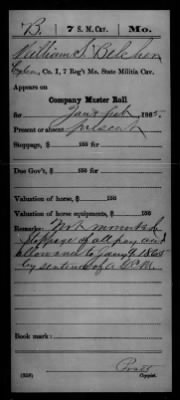 B. 7 S. M. Cav. Mo.
William S. Belcher
Co. I, 7 Reg't Mo. State Militia Cav.
Appears on
Company Muster Roll
for Jany & Feb, 1865.
Present or absent present
Stoppage, $ 100 for
Due Gov't, $ 100 for
Valuation of horse, $ 100
Valuation of horse equipments, $ 100
Remarks: Not mounted
Stoppage of all pay and
allowances to Jany 9 1865
by sentence of a G.C.M.
Book mark:
(858)
Copyist.